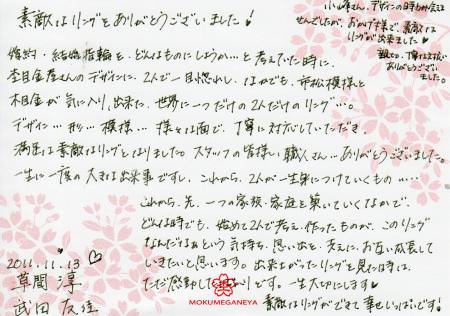 素敵なリングをありがとうございました!
婚約・結婚指輪を、どんなものにしようか…と考えていた時に、
杢目金屋さんのデザインに、2人で一目惚れし、なかでも、市松模様と
木目金が気に入り、出来た、世界に一つだけの2人だけのリング…。
デザイン…形…模様…様々な面で、丁寧に対応していただき、
満足な素敵なリングとなりました。スタッフの皆様、職人さん…ありがとうございました。
一生に一度の大きな出来事ですし、これから、2人が一生身につけていくもの…
これから、先、一つの家族・家庭を築いていくなかで、
どんな時でも、始めて2人で考え、作ったものが、このリング
なんだなぁという気持ち、思い出を、支えに、お互い成長して
いきたいと思います。出来上がったリングを見た時は、
ただただ感動してばかりです。一生大切にします♥
素敵なリングができて幸せいっぱいです!
2011.11.13
草間 淳
武田
小山さん、デザインの時もお会え
せんでしたが、おかげ様で、素敵な
リングが出来ました♥
ありがとうござい
ました。
MOKUMEGANEYA